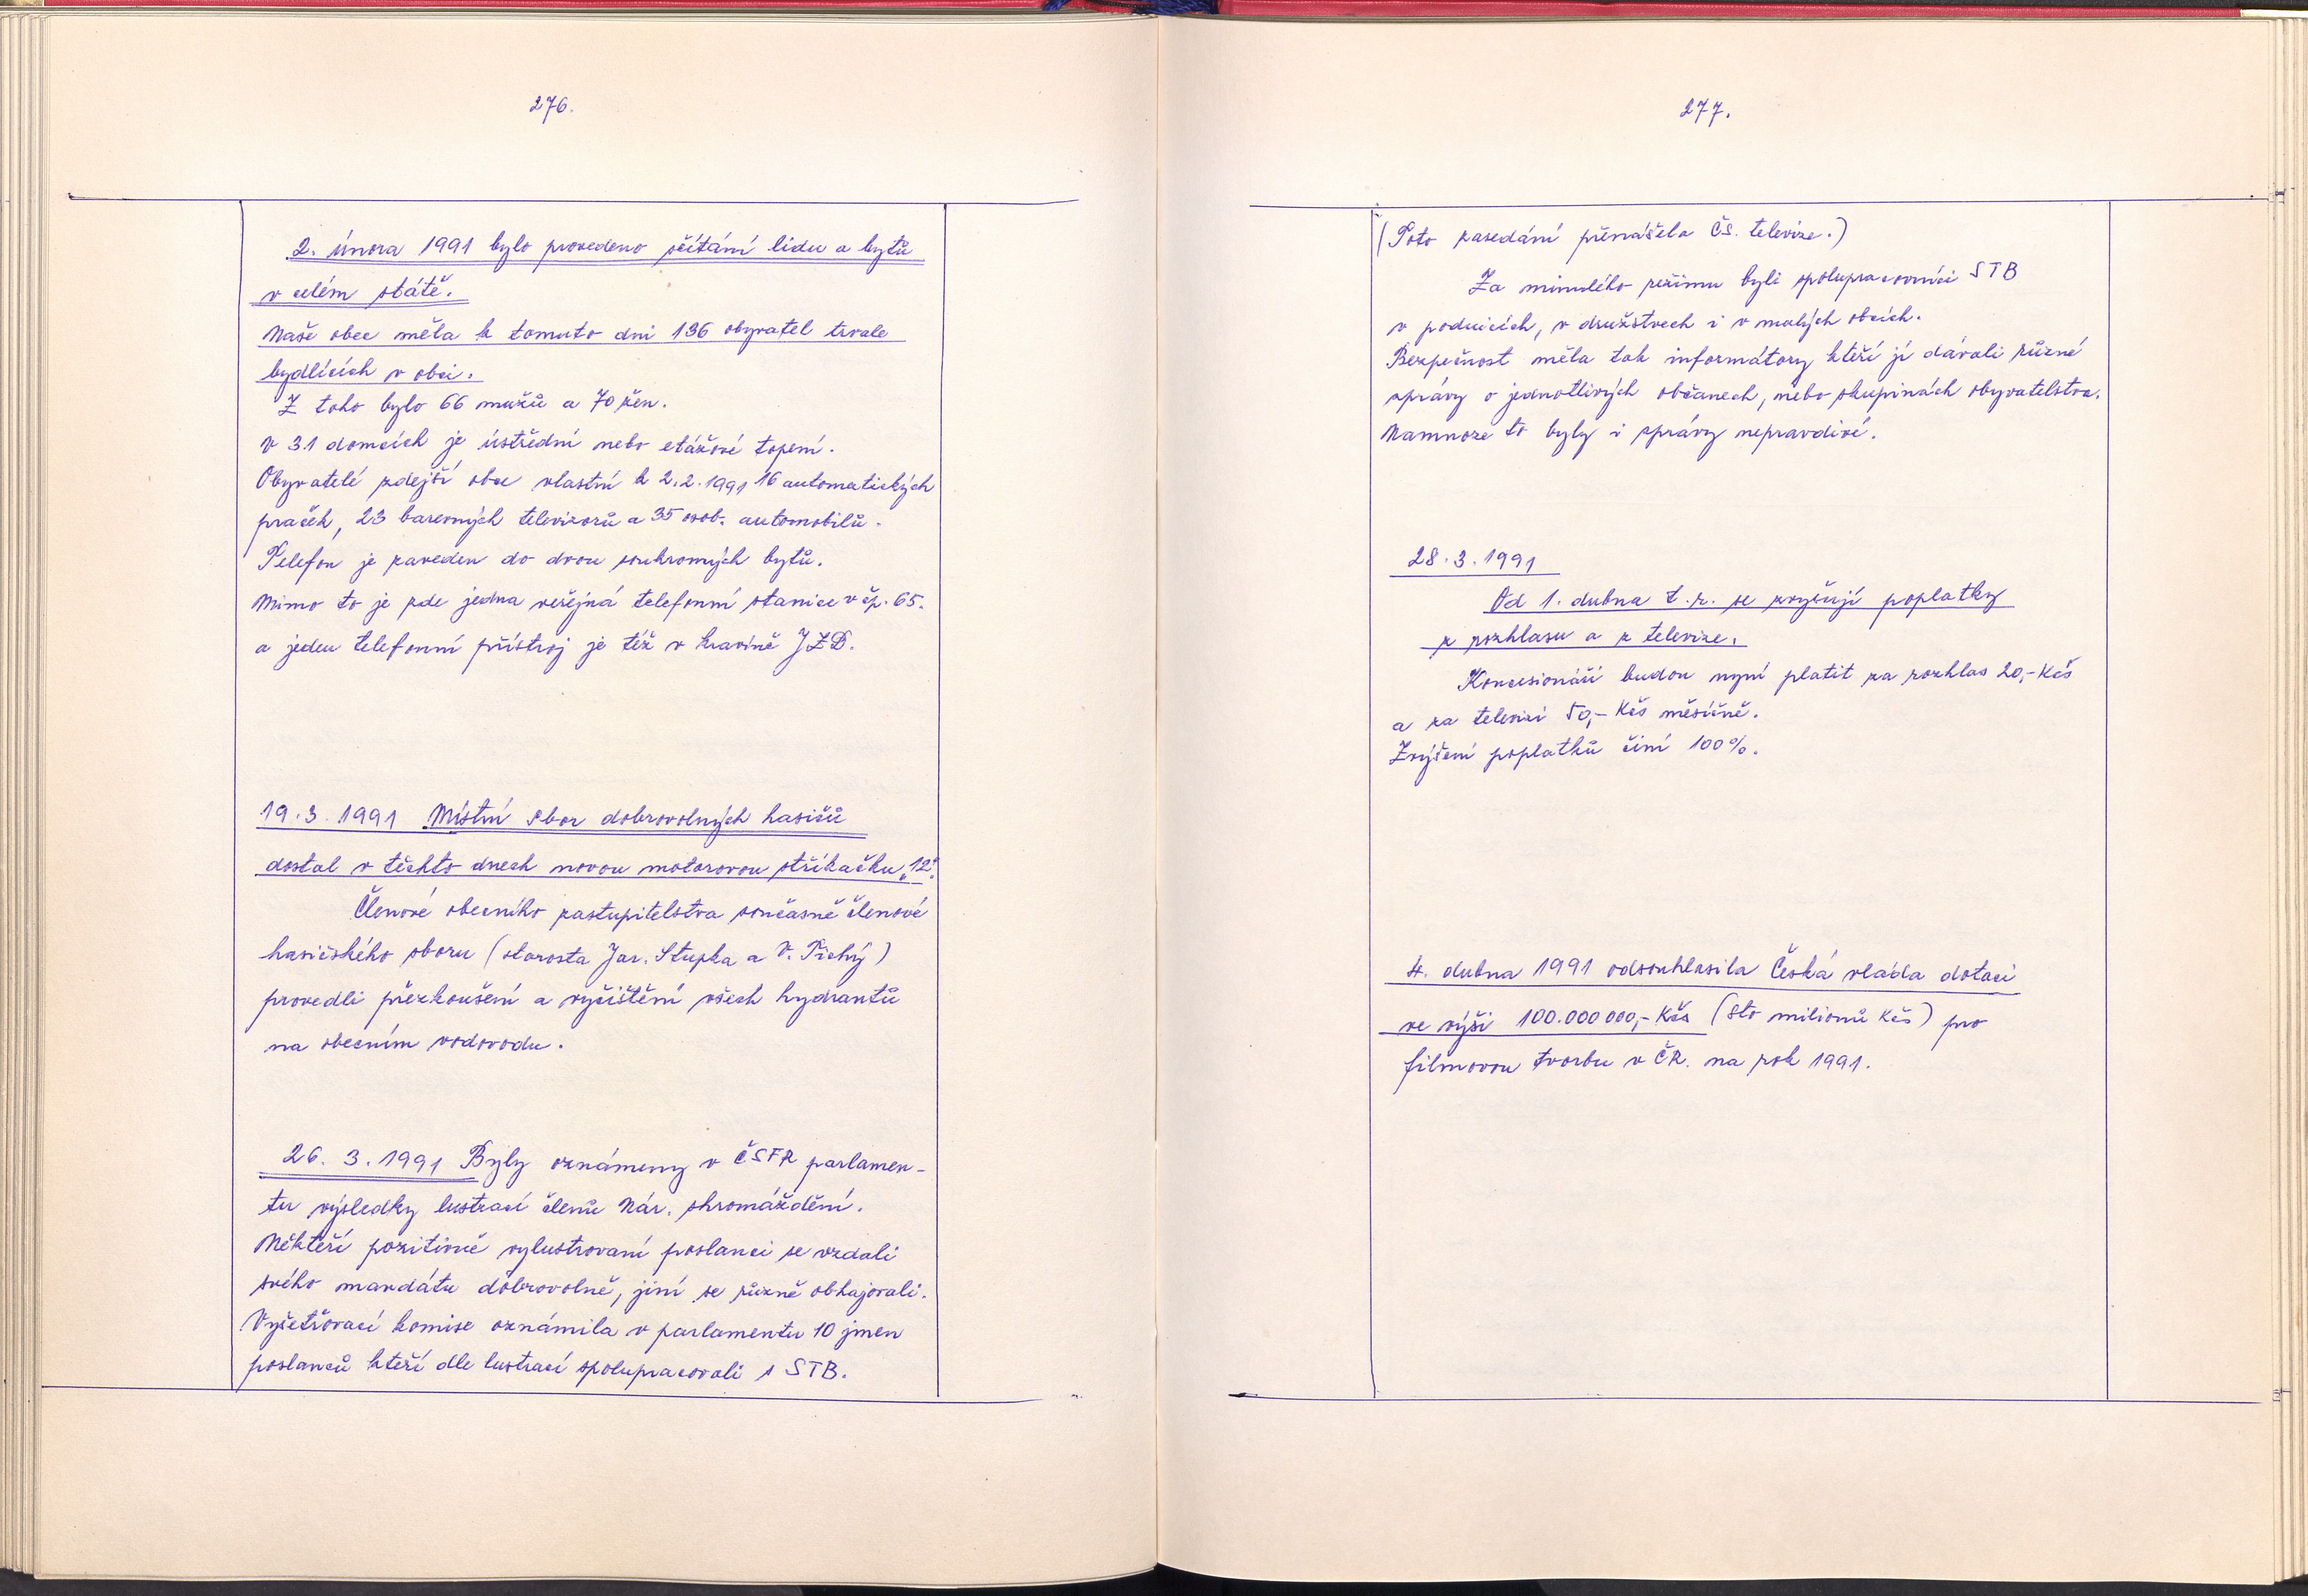 276.
2. února 1991 bylo provedeno sčítání lidu a bytů
v celém státě.
Naše obec měla k tomuto dni 136 obyvatel trvale
bydlících v obci.
Z toho bylo 66 mužů a 70 žen.
V 31 domcích je ústřední nebo etážové topení.
Obyvatelé zdejší obce vlastní k 2.2.1991 16 automatických
praček, 23 barevných televizorů a 35 osob. automobilů.
Telefon je zaveden do dvou soukromých bytů.
Mimo to je zde jedna veřejná telefonní stanice v čp. 65.
a jeden telefonní přístroj je též v kravíně JZD.
19.3.1991 Místní sbor dobrovolných hasičů
dostal v těchto dnech novou motorovou stříkačku „12".
Členové obecního zastupitelstva současně členové
hasičského sboru (starosta Jar. Stupka a V. Tichý)
provedli přezkoušení a vyčištění všech hydrantů
na obecním vodovodu.
26. 3. 1991 Byly oznámeny v ČSFR parlamen-
tu výsledky lustrací členů Nár. shromáždění.
Někteří pozitivně vylustrovaní poslanci se vzdali
svého mandátu dobrovolně, jiní se různě obhajovali.
Vyšetřovací komise oznámila v parlamentu 10 jmen
poslanců kteří dle lustrací spolupracovali s STB.
277.
(Toto zasedání přenášela Čs. televize.)
Za minulého režimu byli spolupracovníci STB
v podnicích, v družstvech i v malých obcích.
Bezpečnost měla tak informátory kteří jí dávali různé
zprávy o jednotlivých občanech, nebo skupinách obyvatelstva.
Namnoze to byly i zprávy nepravdivé.
28.3.1991
Od 1. dubna t.r. se zvyšují poplatky
z rozhlasu a z televize.
Koncesionáři budou nyní platit za rozhlas 20,- Kčs
a za televizi 50,- Kčs měsíčně.
Zvýšení poplatků činí 100%.
4. dubna 1991 odsouhlasila Česká vláda dotaci
ve výši 100.000 000,- Kčs (sto milionů Kčs) pro
filmovou tvorbu v ČR. na rok 1991.